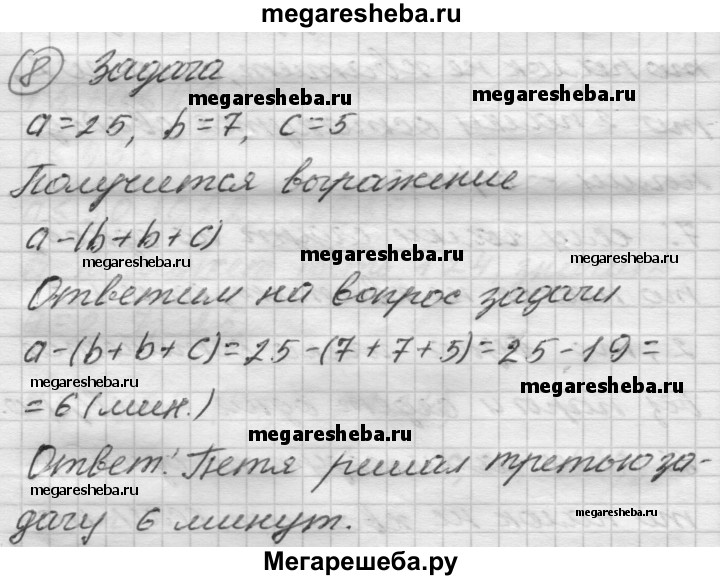 megaresheba.ru
8 Задача
megaresheba.ru megaresheba.ru
a=25, b=7, c=5
Получится выражение
a-(b+b+c)
megaresheba.ru megaresheba.ru megaresheba.ru
Ответим на вопрос задачи
a-(b+b+c)=25-(7+7+5)=25-19=
megaresheba.ru megaresheba.ru
=6(мин.)
megaresheba.ru
Ответ: Петя решал третью за-
megaresheba.ru megaresheba.ru
дачу 6 минут.
megaresheba.ru
Мегарешеба.ру